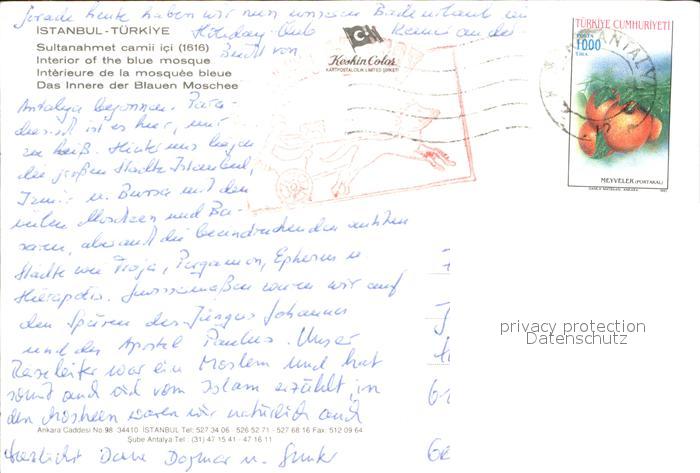 Gerade heute haben wir nun unseren Badeurlaub im
Holiday Club Kemer an der
Bucht von
İSTANBUL - TÜRKİYE
Sultanahmet camii içi (1616)
Interior of the blue mosque
Intérieure de la mosquée bleue
Das Innere der Blauen Moschee
Keskin Color
KARTPOSTALCILIK LIMITED ŞIRKETI
TÜRKİYE CUMHURİYETİ
POSTA
1000
LİRA
ANTALYA
MEYVELER (PORTAKAL)
Antalya begonnen. Para-
diesisch ist es hier, nur
zu heiß. Hinter uns liegen
die großen Städte Istanbul,
Izmir u. Bursa mit den
vielen Moscheen und Ba-
saren, aber auch die beeindruckenden antiken
Städte wie Troja, Pergamon, Ephesus u
Hierapolis. Gewissermaßen waren wir auf
den Spuren des Jüngers Johannes
und des Apostel Paulus. Unser
Reiseleiter war ein Moslem und hat
somit auch viel vom Islam erzählt, in
den Moscheen waren wir natürlich auch
Ankara Caddesi No.98 34410 İSTANBUL Tel: 527 34 06 526 52 71 - 527 68 16 Fax: 512 09 64
Şube Antalya Tel : (31) 47 15 41 - 47 16 11
Herzlichst Deine Dagmar u. Gunter
privacy protection
Datenschutz